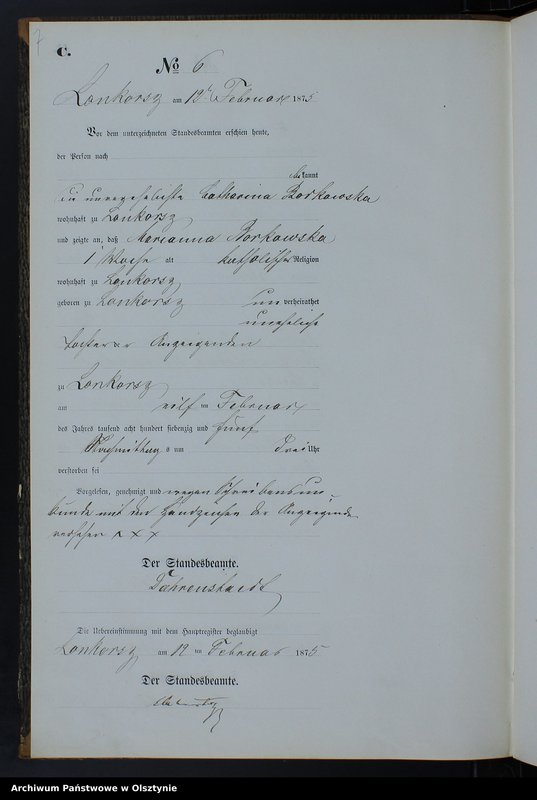 7
C.
No 6
Lonkorsz am 12ten Februar 1875
Vor dem unterzeichneten Standesbeamten erschien heute,
der Person nach
bekannt
die unverehelichte Catharina Borkowska
wohnhaft zu Lonkorsz
und zeigte an, daß Marianna Borkowska
1 Woche alt katholischer Religion
wohnhaft zu Lonkorsz
geboren zu Lonkorsz unverheirathet
uneheliche
Tochter der Anzeigenden
zu Lonkorsz
am eilf ten Februar
des Jahres tausend acht hundert siebenzig und fünf
Nachmittags um drei Uhr
verstorben sei
Vorgelesen, genehmigt und wegen Schreibensun-
kunde mit den Handzeichen der Anzeigenden
versehen x x x
Der Standesbeamte.
Die Uebereinstimmung mit dem Hauptregister beglaubigt
Lonkorsz am 12 ten Februar 1875
Der Standesbeamte.
Archiwum Państwowe w Olsztynie